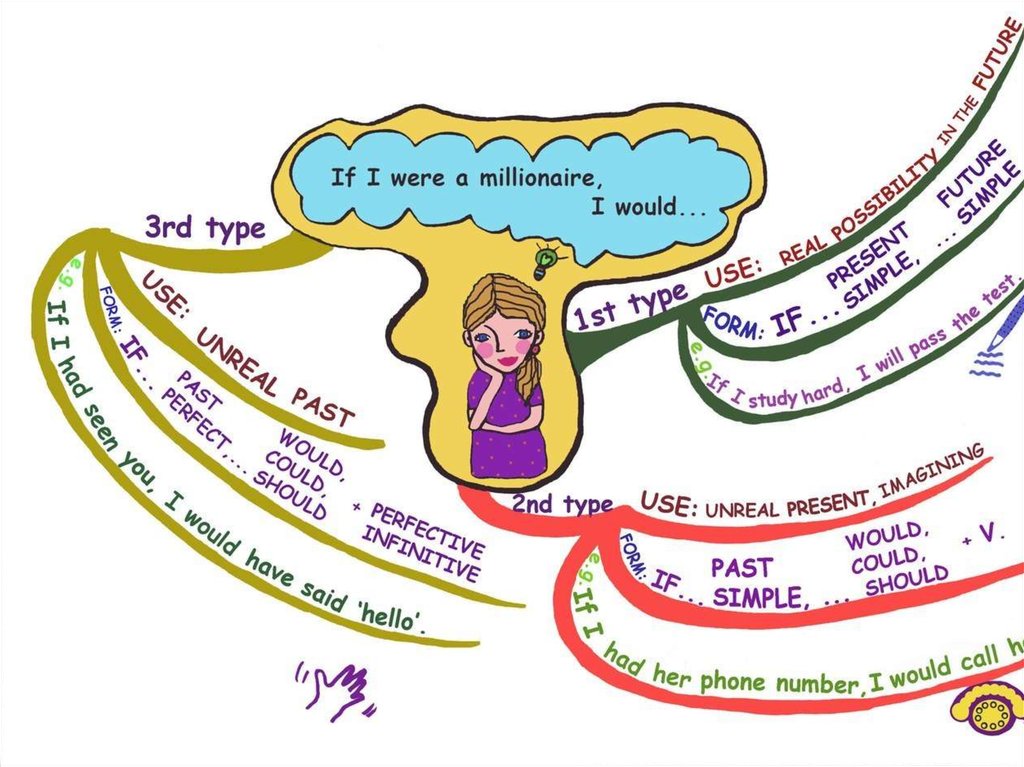 If I were a millionaire,
I would...
1st type
USE: REAL POSSIBILITY IN THE FUTURE
FORM: IF ... PRESENT SIMPLE, ... FUTURE SIMPLE
e.g. If I study hard, I will pass the test.
2nd type
USE: UNREAL PRESENT, IMAGINING
FORM: IF ... PAST SIMPLE, ... WOULD, COULD, SHOULD + V.
e.g. If I had her phone number, I would call
3rd type
USE: UNREAL PAST
FORM: IF ... PAST PERFECT, ... WOULD, COULD, SHOULD + PERFECTIVE INFINITIVE
e.g. If I had seen you, I would have said 'hello'.